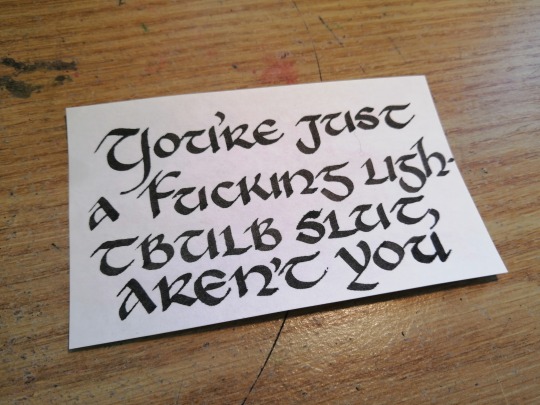 You're just
a Fucking ligh-
tbulb slut,
aren't you